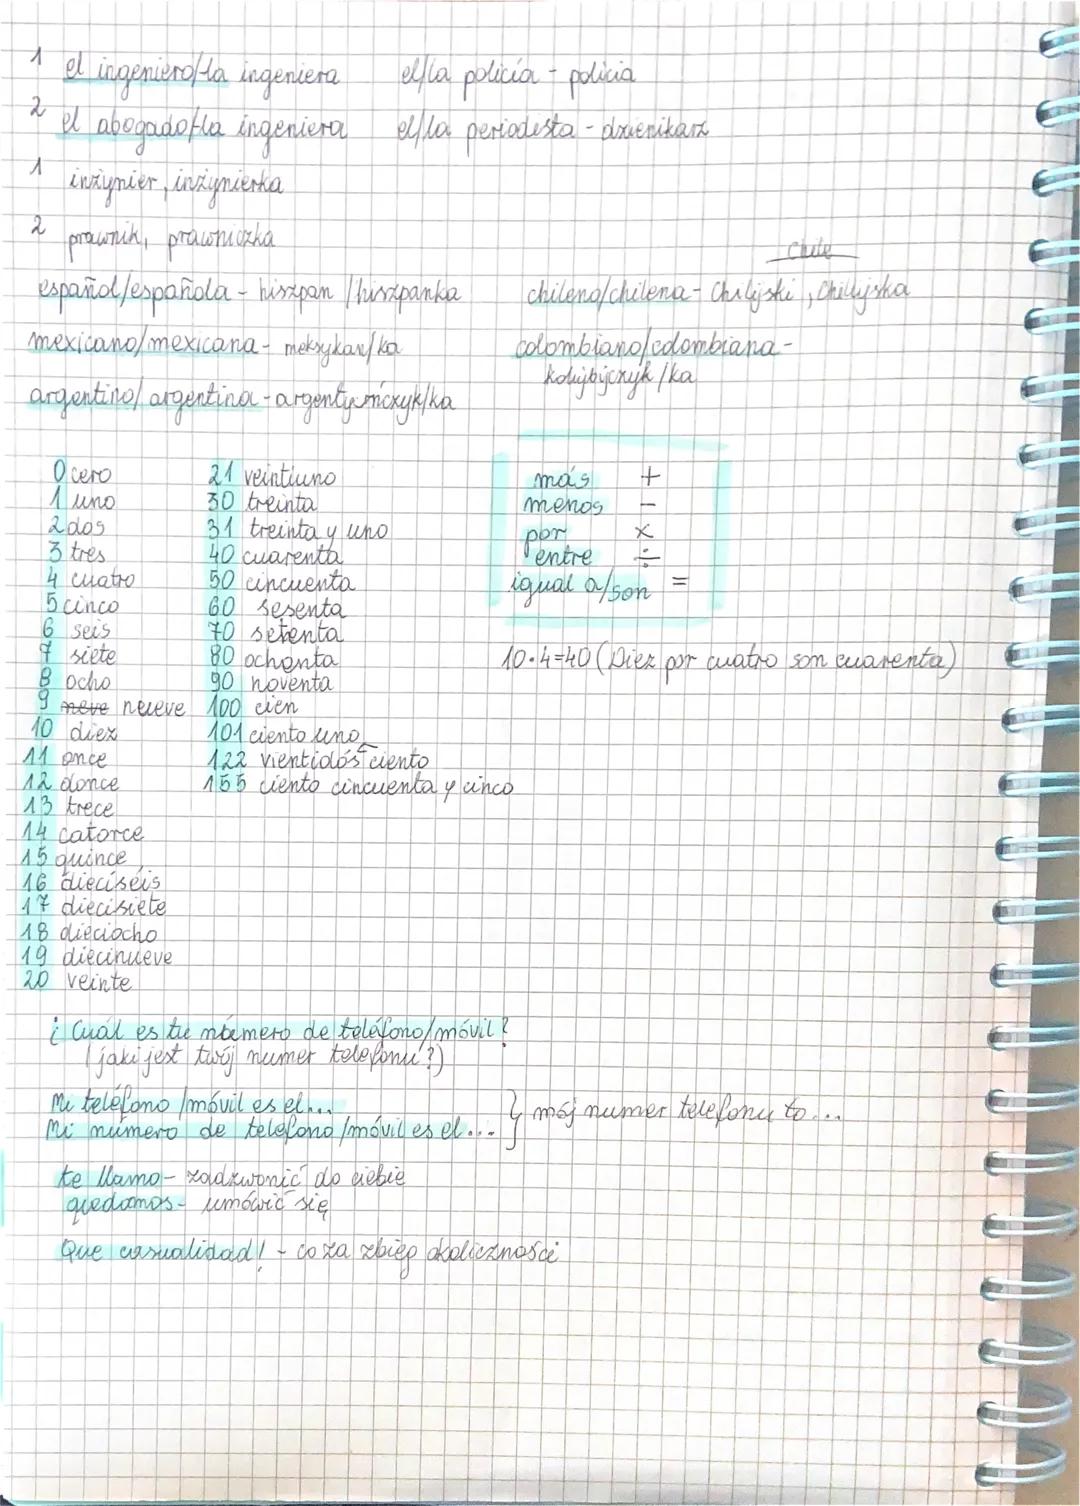 1 el ingeniero/la ingeniera el/la policía - policia
2 el abogado/la ingeniera el/la periodista - dziennikarz
1 inżynier, inżynierka
2 prawnik, prawniczka
Chile
español/española - hiszpan /hiszpanka chileno/chilena - Chilijski, Chilijska
mexicano/mexicana - meksykan/ka colombiano/colombiana -
argentino/ argentina - /ka
0 cero 21 veintiuno más +
1 uno 30 treinta menos -
2 dos 31 treinta y uno por x
3 tres 40 cuarenta entre ÷
4 cuatro 50 cincuenta igual a/son =
5 cinco 60 sesenta
6 seis 70 setenta
7 siete 80 ochenta 10·4=40 (Diez por cuatro son cuarenta)
8 ocho 90 noventa
9 neve nueve 100 cien
10 diez 101 ciento uno
11 once 122 vientidós ciento
12 donce 155 ciento cincuenta y cinco
13 trece
14 catorce
15 quince
16 dieciséis
17 diecisiete
18 dieciocho
19 diecinueve
20 veinte
¿Cuál es tu número de teléfono/móvil?
(jaki jest twój numer telefonu?)
Mi teléfono /móvil es el...
Mi número de teléfono /móvil es el... } mój numer telefonu to...
te llamo - zadzwonić do ciebie
quedamos - umówić się
Que casualidad! - co za zbieg okoliczności